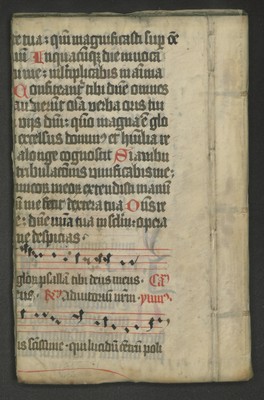 re tua: qm magnificasti sup oe
um Inquacuqz die inuoca
n me: multiplicabis in aima
Confiteant tibi dne omnes
audierut oia verba oris tui
viis dni: qm magna e glo
excelsus domin et humilia re
a longe cognoscit Si ambu
tribulacionis viuificabis me:
imicor meor extendisti manu
m me fecit dextera tua Dns re
e: dne mia tua in sclm: opera
ne despicias
glor psalla tibi deus meus
adiutoriu nrm
is sctissime qui lucidu cetru poli